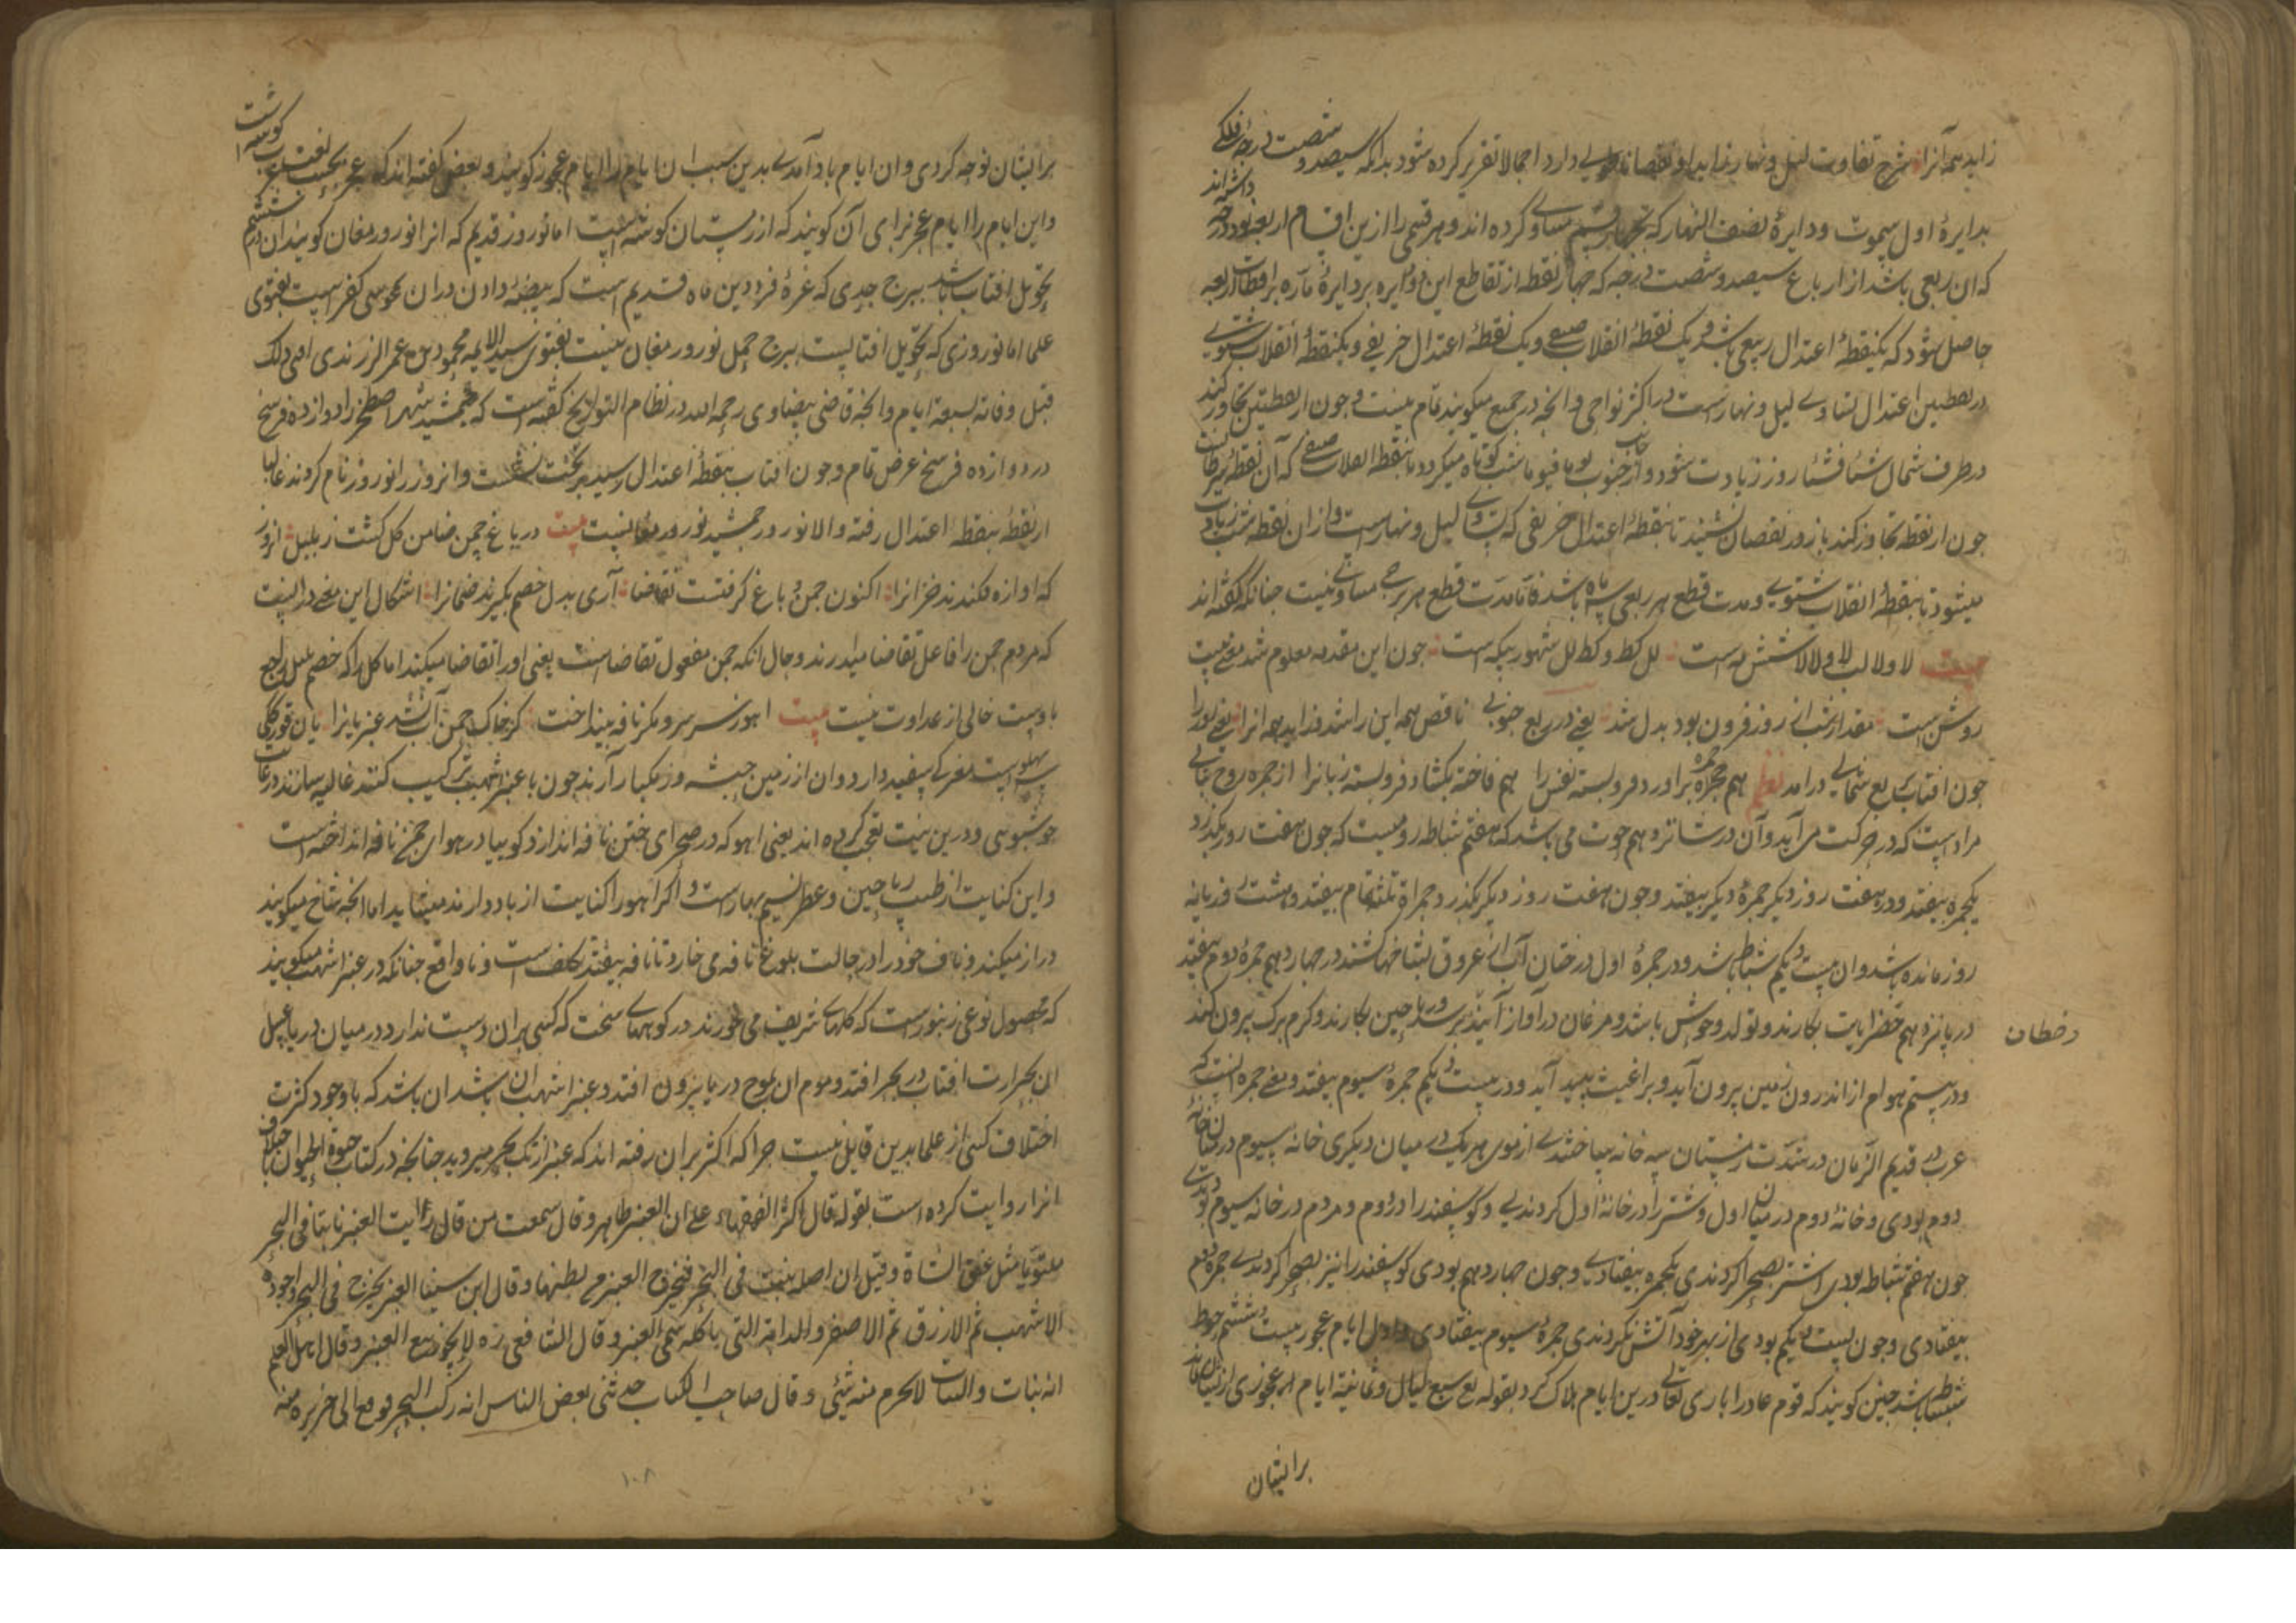 زاید همه آنرا شرح تفاوت لیل و نهار زایدا و نقصانا طولی دارد اجمالا تقریر کرده شود بدانکه سیصد و شصت درجه فلکی
بدایرهٔ اول سموت و دایرهٔ نصف النهار که بچهار قسم مساوی کرده اند و هر قسمی را ازین اقسام اربعه نود درجه داشته اند
که ان ربعی باشد از ارباع سیصد و شصت درجه که چهار نقطه از تقاطع این دو دایره بر دایرهٔ ماره براقطاب اربعه
حاصل شود که یکنقطهٔ اعتدال ربیعی باشد و یک نقطهٔ انقلاب صیفی و یک نقطهٔ اعتدال خریفی و یکنقطهٔ انقلاب شتوی
در نقطتین اعتدال تساوی لیل و نهارست در اکثر نواحی و انچه در جمیع میکویند تمام نیست و چون از نقطتین تجاوز کند
در طرف شمال شیئا فشیئا روز زیادت شود و از جانب جنوب یوما فیوما شب کوتاه میکردد تا بنقطه انقلاب صیفی که آن نقطهٔ سرطانست
چون از نقطه تجاوز کند باز روز نقصان نشیند تا بنقطهٔ اعتدال خریفی که تساوی لیل و نهارست و از ان نقطه شب زیادت
میشود تا بنقطهٔ انقلاب شتوی و مدت قطع هر ربعی سه ماه باشد فاما مدت قطع هر برجی مساوی نیست چنانکه گفته اند
بیت لا و لا لب لا و لا لا شش مه است لل کط و کط لل شهور یکه است چون این مقدمه معلوم شد معنی بیت
روشن است مقدار شب از روز فزون بود بدل شد یعنی در ربع جنوبی ناقص همه این را شد و زاید همه انرا یعنی نور را
چون افتاب بربع شمالی درامد نظم هم جمره براورد فرو بسته نفس را هم فاخته بکشاد فرو بسته زبانرا از جمره روح نباتی
مرادست که در حرکت می آید و آن در شانزدهم حوت می باشد که هفتم شباط رومیست که چون هفت روز بکذرد
یکجمره بیفتد و در هفت روز دیکر جمرهٔ دیکر بیفتد و چون هفت روز دیکر بکذرد جمراة ثلثه تمام بیفتد و هشت روز یا نه
روز مانده باشد و ان بیست و یکم شباط باشد و در جمرهٔ اول درختان آب از عروق بشاخها کشند در چهاردهم جمرهٔ دوم بیفتد
در پانزدهم خضرایات بکارند و تولد وحوش باشد و مرغان در آواز آیند و ریاحین بکارند و کرم برک بیرون کند
و در بیستم هوام از اندرون زمین بیرون آید و براغیث پدید آید و در بیست و یکم جمرهٔ سیوم بیفتد و معنی جمره انست که
عرب در قدیم الزمان در شدت زمستان سه خانه میساختندی از موی هر یک در میان دیکری خانهٔ سیوم در میان خانهٔ
دوم بودی و خانهٔ دوم در میان اول و شتر را در خانهٔ اول کردندی و کوسفند را در دوم و مردم در خانه سیوم بودندی
چون هفتم شباط بودی اشتر بصحرا کردندی یکجمره بیفتادی و چون چهاردهم بودی کوسفند را نیز بصحرا کردندی جمره دوم
بیفتادی و چون بیست و یکم بودی از بهر خود آتش نکردندی جمرهٔ سیوم بیفتادی و اول ایام عجوز بیست و ششم
شباط باشد چنین کویند که قوم عاد را باری تعالی درین ایام هلاک کرد بقوله تع سبع لیال و ثمانیة ایام
برایشان
برایشان نوحه کردی و ان ایام باد آمدی بدین سبب ان ایام را ایام عجوز کویند و بعضی گفته اند که عجز بحسب لغت عرب
و این ایام را ایام عجز برای آن کویند که از زمستان کوشه ایست اما نوروز قدیم که انرا نوروز مغان کویند ان
تحویل افتاب باشد ببرج جدی که غرهٔ فرودین ماه قدیم است که بیضه دادن در ان بمجوسی کفرست بفتوی
علما اما نوروزی که تحویل افتابست ببرج حمل نوروز مغان نیست بفتوی سید الایمه محمود بن عمر الزرندی افتی ذلک
قبل وفاته بسبعة ایام و انچه قاضی بیضاوی رحمه الله در نظام التواریخ گفته است که جمشید شهر اصطخر را دوازده فرسخ
در دوازده فرسخ عرض تمام و چون افتاب بنقطهٔ اعتدال رسید بر تخت نشست و انروز را نوروز نام کردند غالبا
از نقطه بنقطه اعتدال رفته والا نوروز جمشید نوروز مغانست بیت در باغ چمن ضامن کل کشت ز بلبل انروز
که اوازه فکندند خزانرا اکنون چمن باغ گرفتست تقاضا آری بدل خصم بکیرند ضمانرا اشکال این معنی در انست
که مردم چمن را فاعل تقاضا میدارند و حال انکه چمن مفعول تقاضاست یعنی او را تقاضا میکنند اما کل را که خصم بلبل
با اوست خالی از عداوت نیست بیت اهو ز سر سرو مکر نافه بینداخت کز خاک چمن آب بشد عنبر و بانرا
پهلویست مغزکی سفید دارد و ان از زمین حبشه و زنکبار آرند چون با عنبر اشهب ترکیب کنند غالیه سازند در غایت
خوشبوی و درین بیت تعجب کرده اند یعنی اهو که در صحرای ختن نافه اندازد کوییا در هوای چمن نافه انداخته است
و این کنایت از طیب ریاحین و عطر نسیم بهارست و اکر اهو را کنایت از باد دارند میشاید اما انچه شاخ میکویند
دراز میکند و ناف خود را در حالت بلوغ نافه می خارد تا نافه بیفتد تکلف است و نا واقع چنانکه در عنبر اشهب میکویند
که محصول نوعی زنبورست که کلهای شریف می خورند در کوههای سخت که کسی بران دست ندارد و در میان دریا
ان بحرارت افتاب در بحر افتد و موم ان بموج دریا بیرون افتد و عنبر اشهب ان باشد ان باشد که با وجود کثرت
اختلاف کسی از علما بدین قایل نیست چرا که اکثر بران رفته اند که عنبر از تک بحر میروید چنانچه در کتاب حیوة الحیوان
انرا روایت کرده است بقوله قال اکثر الفقهاء علی ان العنبر طاهر و قال سمعت من قال رایت العنبر نابتا فی البحر
ملتویا مثل عنق الشاة و قیل ان اصله ینبت فی البحر فیخرج العنبر من بطنها و قال ابن سینا العنبر یخرج فی البحر و اجوده
الاشهب ثم الازرق ثم الاصفر و الدابة التی یاکله سمی العنبر و قال الشافعی رَه لا یجوز بیع العنبر و قال اهل العلم
انه نبات و النبات لا یحرم منه شیٔ و قال صاحب الکتاب حدثنی بعض الناس انه رکب البحر فوقع الی جزیره
۱۰۸